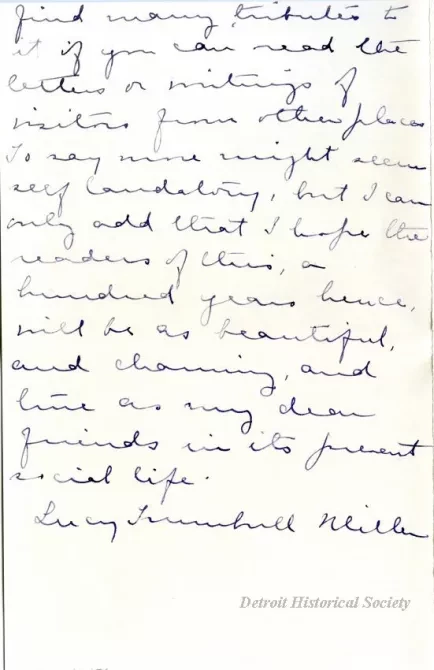 find many tributes to
it if you can read the
letters or writings of
visitors from other places
To say more might seem
self laudatory, but I can
only add that I hope the
readers of this, a
hundred years hence,
will be as beautiful,
and charming, and
true as my dear
friends in its present
social life.
Lucy Trumbull Miller
Detroit Historical Society